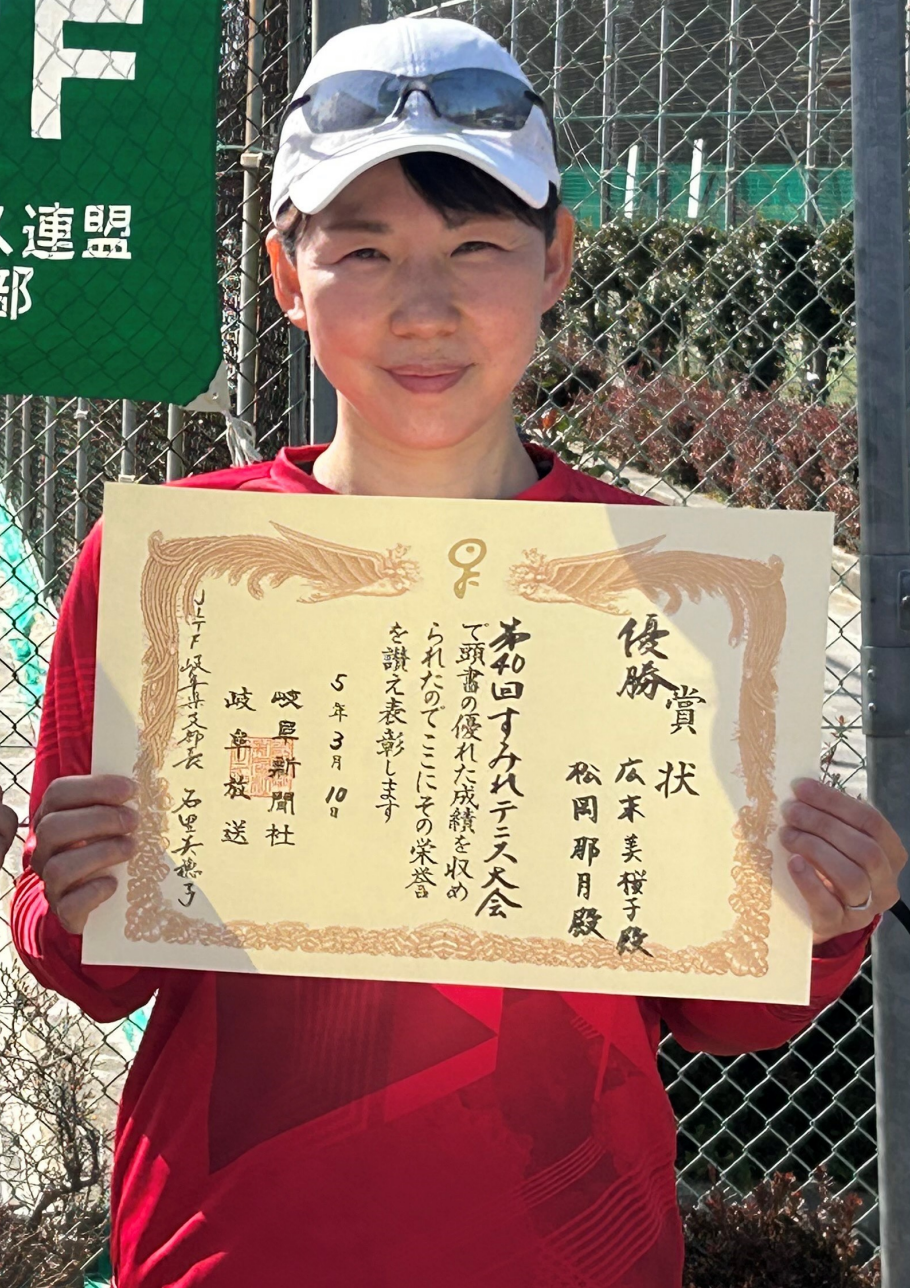 F
ス連盟
部
賞状
優勝
広末美桜子殿
松岡那月殿
第40回すみれテニス大会
で頭書の優れた成績を収め
られたのでここにその栄誉
を讃え表彰します
5年3月10日
岐阜新聞社
岐阜放送
JLTF岐阜県支部長 石里美穂子